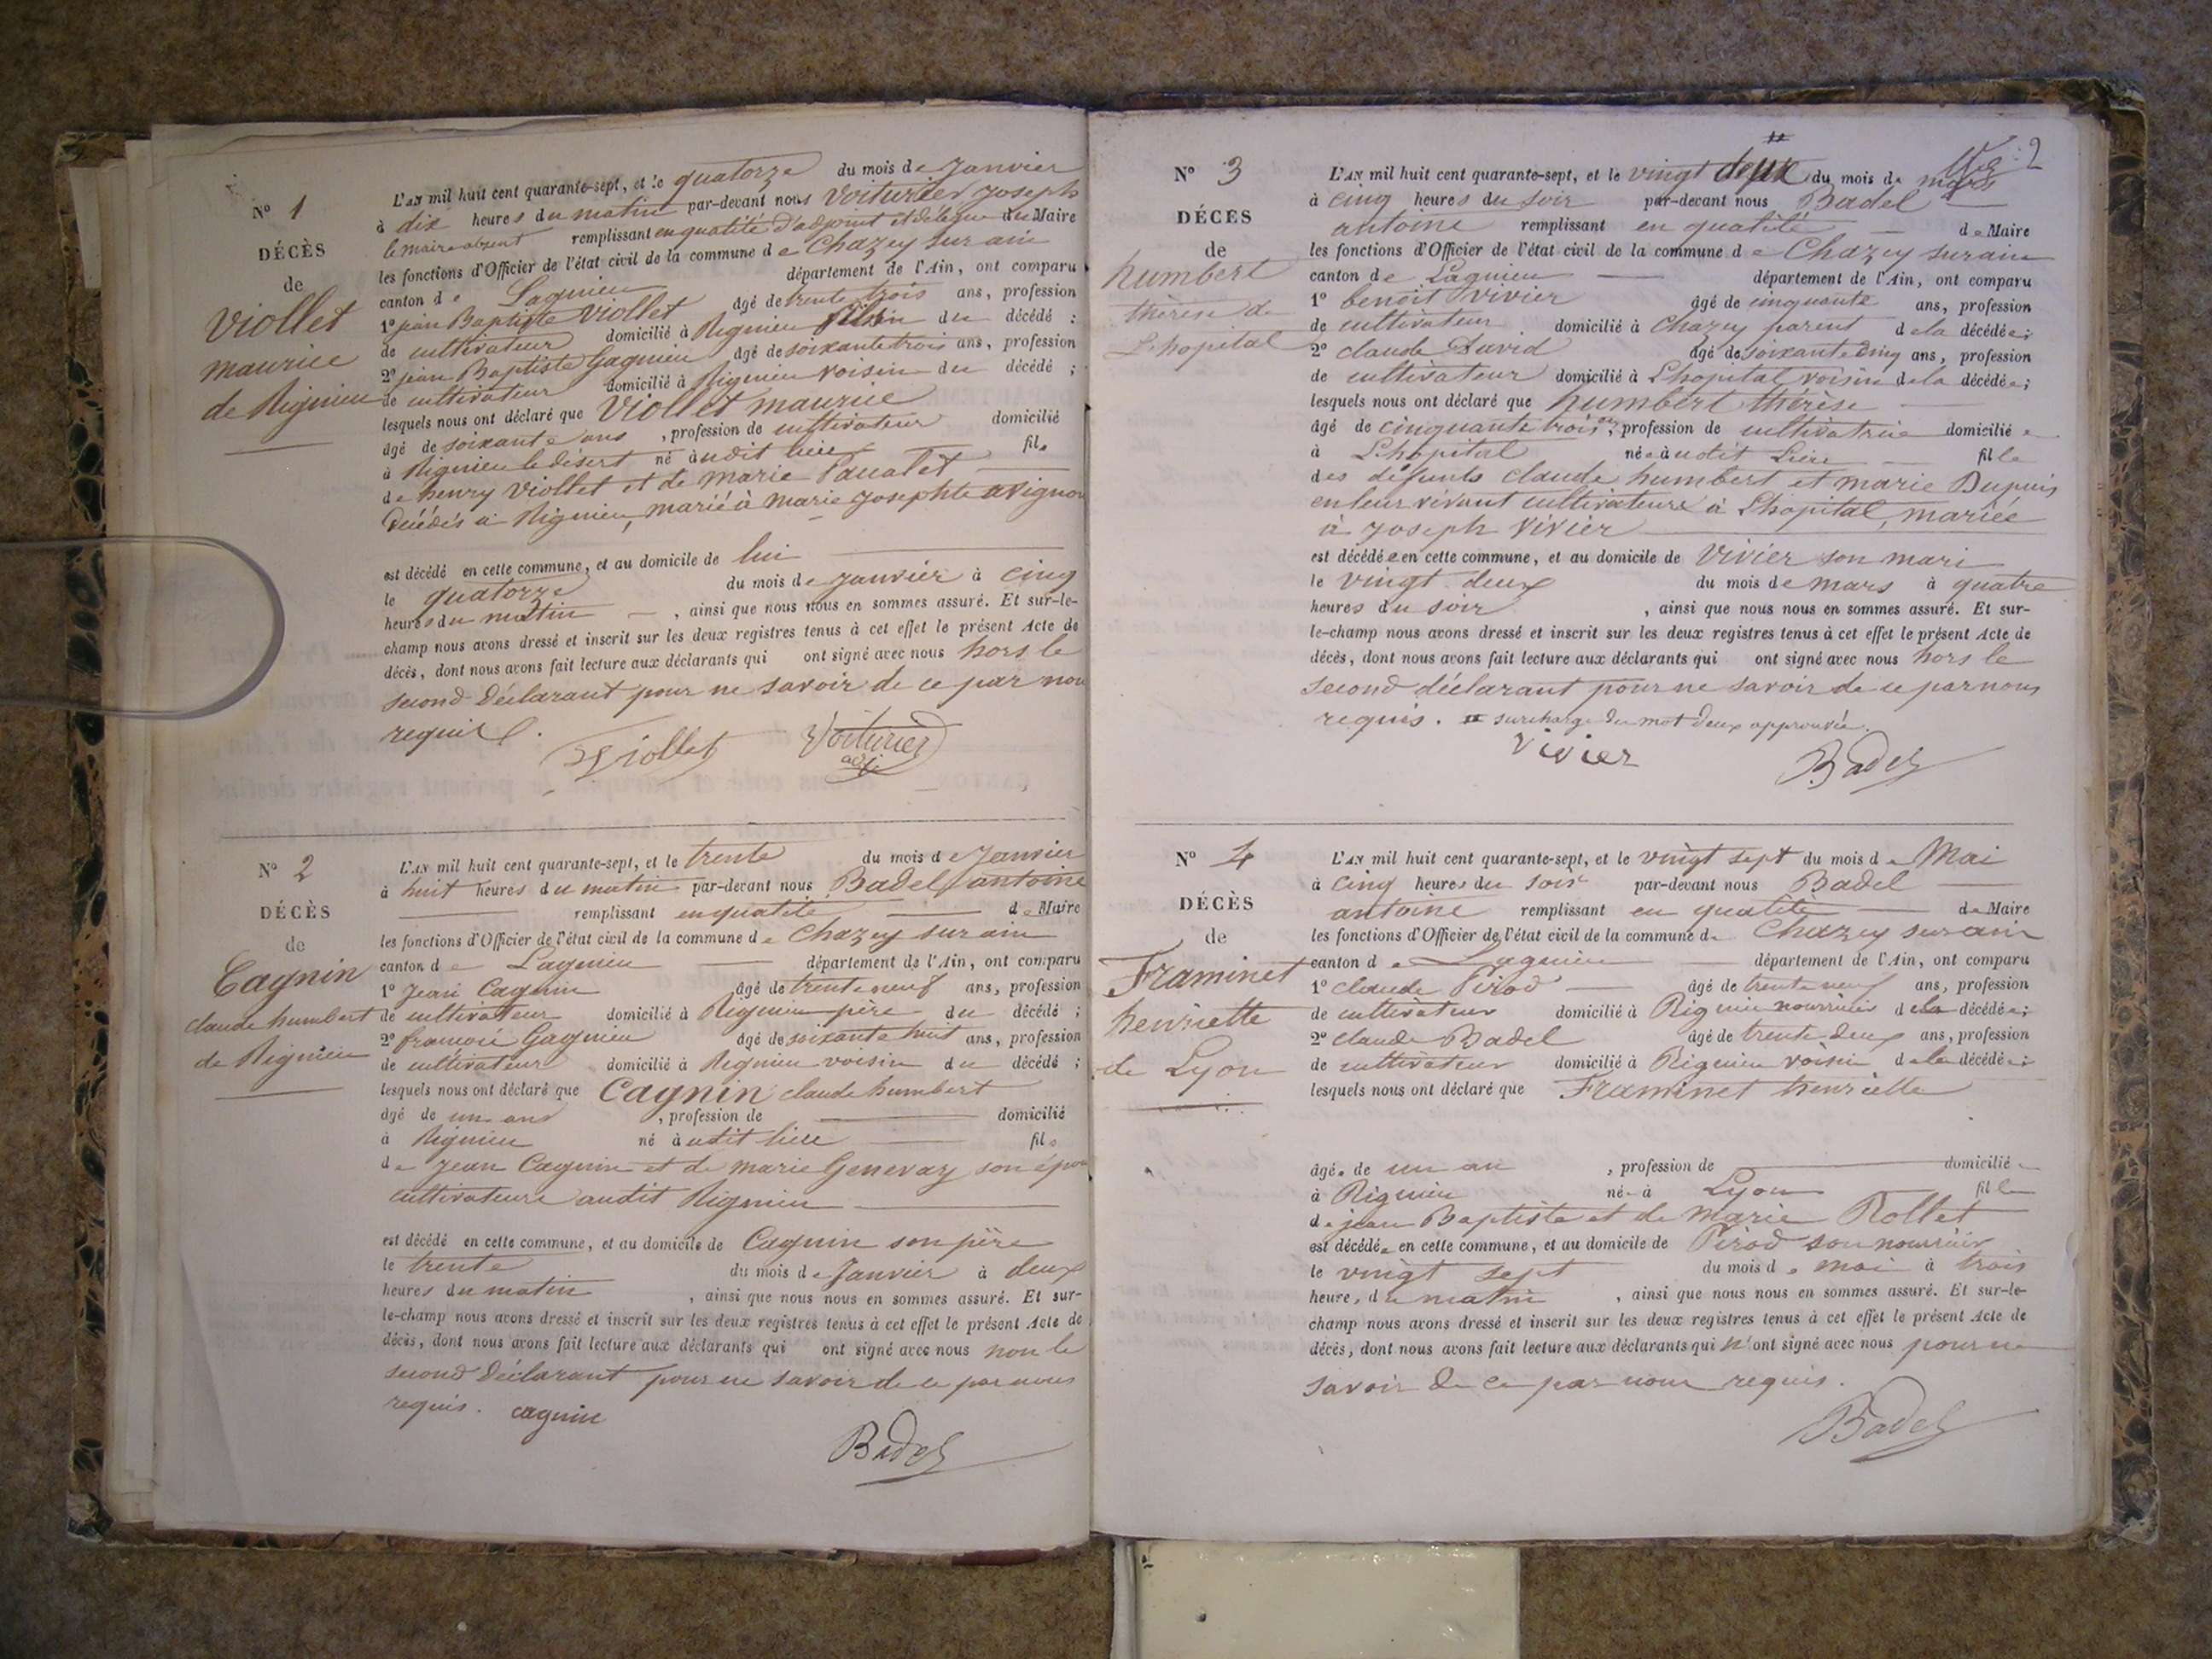 N° 1
DÉCÈS
de
Viollet
maurice
de Rignieu
L'AN mil huit cent quarante-sept, et le quatorze du mois de Janvier
à dix heures du matin par-devant nous Voiturier Joseph
le maire absent remplissant en qualité d'adjoint et delegue du Maire
les fonctions d'Officier de l'état civil de la commune de Chazey sur ain
canton de Lagnieu département de l'Ain, ont comparu
1° jean Baptiste Viollet âgé de trente trois ans, profession
de cultivateur domicilié à Rignieu fils du décédé ;
2° jean Baptiste Gagnieu âgé de soixante trois ans, profession
de cultivateur domicilié à Rignieu voisin du décédé ;
lesquels nous ont déclaré que Viollet maurice
âgé de soixante ans , profession de cultivateur domicilié
à Rignieu le désert né audit lieu fils
de henry Viollet et de marie
décédés à Rignieu, marié à marie Josephte avignon
est décédé en cette commune, et au domicile de lui
le quatorze du mois de Janvier à cinq
heures du matin , ainsi que nous nous en sommes assuré. Et sur-le-
champ nous avons dressé et inscrit sur les deux registres tenus à cet effet le présent Acte de
décès, dont nous avons fait lecture aux déclarants qui ont signé avec nous hors le
second déclarant pour ne savoir de ce par nous
requis.
Viollet Voiturier
adj
N° 2
DÉCÈS
de
Cagnin
claude humbert
de Rignieu
L'AN mil huit cent quarante-sept, et le trente du mois de Janvier
à huit heures du matin par-devant nous Badel antoine
remplissant en qualité de Maire
les fonctions d'Officier de l'état civil de la commune de Chazey sur ain
canton de Lagnieu département de l'Ain, ont comparu
1° Jean Cagnin âgé de trente neuf ans, profession
de cultivateur domicilié à Rignieu père du décédé ;
2° françois Gagnieu âgé de soixante huit ans, profession
de cultivateur domicilié à Rignieu voisin du décédé ;
lesquels nous ont déclaré que Cagnin claude humbert
âgé de un ans , profession de domicilié
à Rignieu né audit lieu fils
de Jean Cagnin et de marie Genevay son épou
cultivateurs audit Rignieu
est décédé en cette commune, et au domicile de Cagnin son père
le trente du mois de Janvier à deux
heures du matin , ainsi que nous nous en sommes assuré. Et sur-
le-champ nous avons dressé et inscrit sur les deux registres tenus à cet effet le présent Acte de
décès, dont nous avons fait lecture aux déclarants qui ont signé avec nous non le
second déclarant pour ne savoir de ce par nous
requis. cagnin
Badel
2
N° 3
DÉCÈS
de
humbert
thérèse de
L'hopital
L'AN mil huit cent quarante-sept, et le vingt deux du mois de mars
à cinq heures du soir par-devant nous Badel
antoine remplissant en qualité de Maire
les fonctions d'Officier de l'état civil de la commune de Chazey sur ain
canton de Lagnieu département de l'Ain, ont comparu
1° benoit Vivier âgé de cinquante ans, profession
de cultivateur domicilié à Chazey parent de la décédée ;
2° claude David âgé de soixante cinq ans, profession
de cultivateur domicilié à L'hopital voisin de la décédée ;
lesquels nous ont déclaré que humbert thérèse
âgé de cinquante trois ans, profession de cultivatrice domiciliée
à L'hopital née audit Lieu fille
des défunts claude humbert et marie Dupuis
en leur vivant cultivateurs à L'hopital, mariée
à joseph Vivier
est décédée en cette commune, et au domicile de Vivier son mari
le vingt deux du mois de mars à quatre
heures du soir , ainsi que nous nous en sommes assuré. Et sur-
le-champ nous avons dressé et inscrit sur les deux registres tenus à cet effet le présent Acte de
décès, dont nous avons fait lecture aux déclarants qui ont signé avec nous hors le
second déclarant pour ne savoir de ce par nous
requis. surcharge du mot deux approuvée.
Vivier Badel
N° 4
DÉCÈS
de
Framinet
henriette
de Lyon
L'AN mil huit cent quarante-sept, et le vingt sept du mois de Mai
à cinq heures du soir par-devant nous Badel
antoine remplissant en qualité de Maire
les fonctions d'Officier de l'état civil de la commune de Chazey sur ain
canton de Lagnieu département de l'Ain, ont comparu
1° claude Pirod âgé de trente neuf ans, profession
de cultivateur domicilié à Rignieu nourricier de la décédée ;
2° claude Badel âgé de trente deux ans, profession
de cultivateur domicilié à Rignieu voisin de la décédée ;
lesquels nous ont déclaré que Framinet henriette
âgée de un an , profession de domiciliée
à Rignieu née à Lyon fille
de jean Baptiste et de Marie Rollet
est décédée en cette commune, et au domicile de Pirod son nourricier
le vingt sept du mois de mai à trois
heures du matin , ainsi que nous nous en sommes assuré. Et sur-le-
champ nous avons dressé et inscrit sur les deux registres tenus à cet effet le présent Acte de
décès, dont nous avons fait lecture aux déclarants qui n'ont signé avec nous pour ne
savoir de ce par nous requis.
Badel